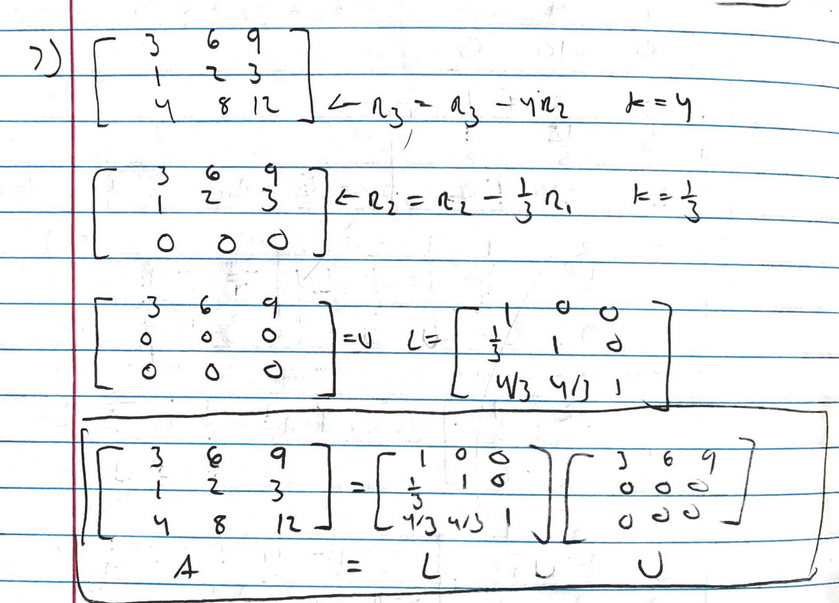 7) [ 3 6 9
1 2 3
4 8 12 ] ← R₃ = R₃ - 4R₂ k = 4
[ 3 6 9
1 2 3 ← R₂ = R₂ - 1/3 R₁ k = 1/3
0 0 0 ]
[ 3 6 9
0 0 0
0 0 0 ] = U L = [ 1 0 0
1/3 1 0
4/3 4/3 1 ]
[ 3 6 9
1 2 3
4 8 12 ] = [ 1 0 0
1/3 1 0
4/3 4/3 1 ] [ 3 6 9
0 0 0
0 0 0 ]
A = L U